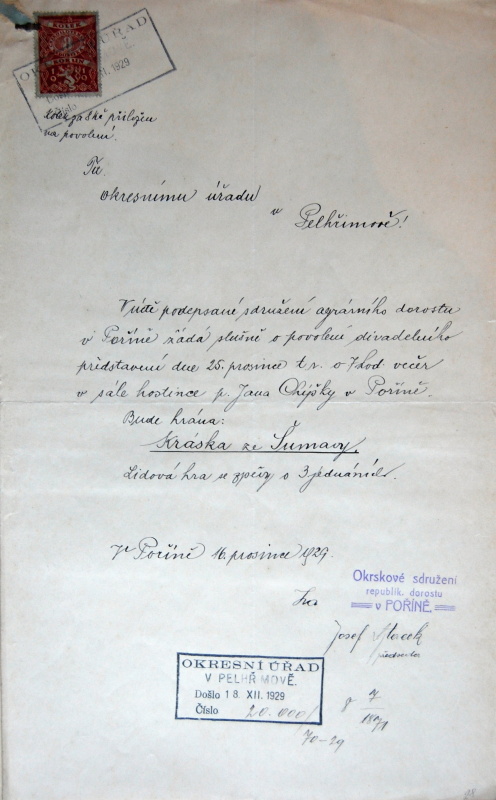 KOLEK
OKRESNÍ ÚŘAD
XII. 1929
Číslo
Kolek za 8 Kč přiložen
na povolení.
Tit.
Okresnímu úřadu
v Pelhřimově!
Níže podepsané sdružení agrárního dorostu
v Poříně žádá slušně o povolení divadelního
představení dne 25. prosince t. r. o 7 hod. večer
v sále hostince p. Jana Chýšky v Poříně.
Bude hrána:
Kráska ze Šumavy.
Lidová hra se zpěvy o 3 jednáních.
V Poříně 16. prosince 1929.
Okrskové sdružení
republik. dorostu
v POŘÍNĚ.
Za
Josef
předseda
OKRESNÍ ÚŘAD
V PELHŘIMOVĚ.
Došlo 18 XII. 1929
Číslo 20.000/
70-29
8 7